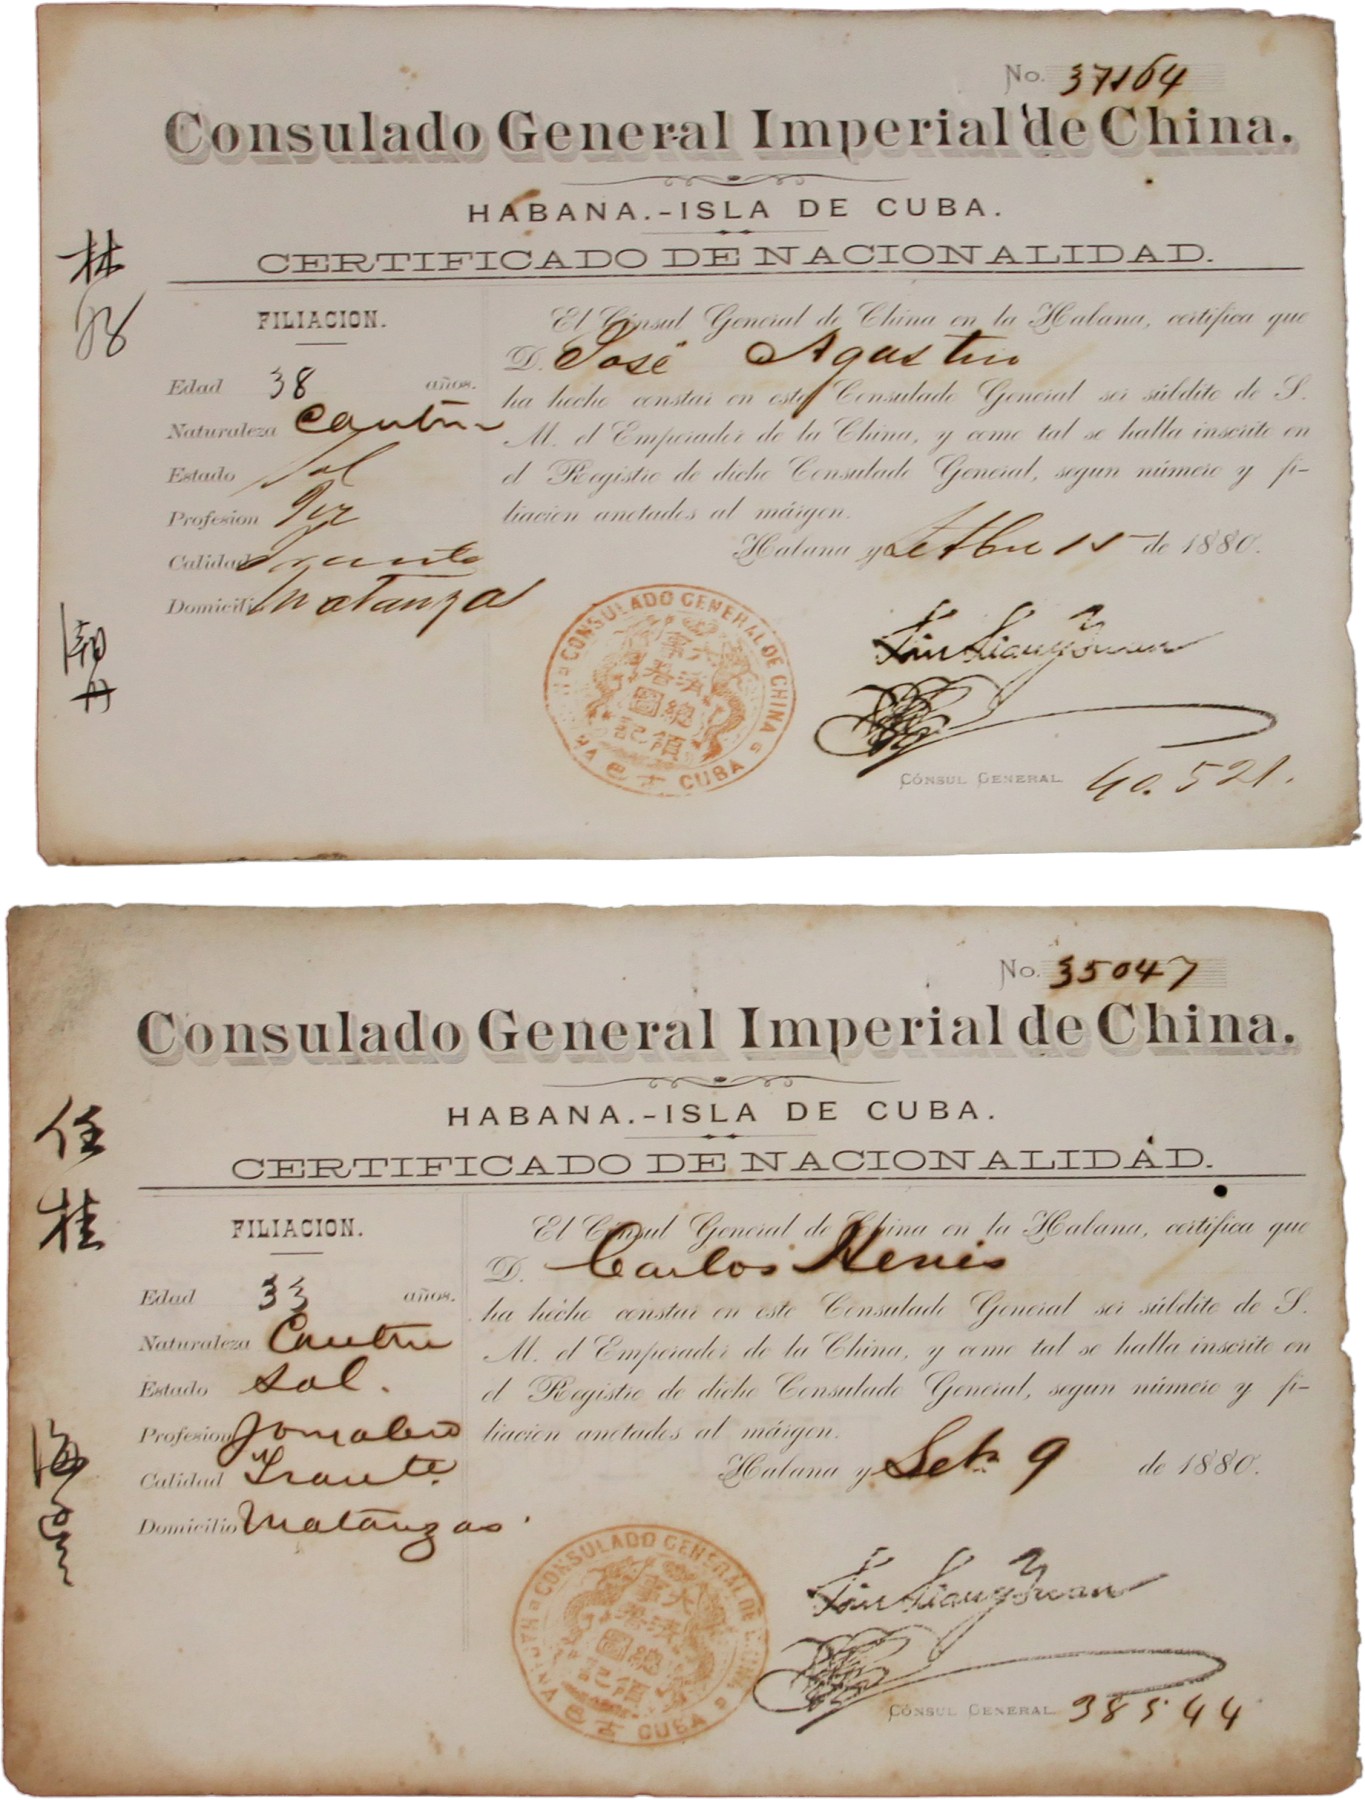 No. 37164
Consulado General Imperial de China.
HABANA.-ISLA DE CUBA.
CERTIFICADO DE NACIONALIDAD.
林
FILIACION.
Edad 38 años.
Naturaleza Canton
Estado Sol
Profesion
Calidad
Domicilio Matanzas
潮州
El Cónsul General de China en la Habana, certifica que
D. José Agustin
ha hecho constar en este Consulado General ser súbdito de S.
M. el Emperador de la China, y como tal se halla inscrito en
el Registro de dicho Consulado General, segun número y fi-
liacion anotados al márgen.
Habana y Setbre 15 de 1880.
CONSULADO GENERAL DE CHINA
HABANA CUBA
古巴
大清
總領
事署
圖記
Lin Liang Yuan
CÓNSUL GENERAL 40.521.
No. 35047
Consulado General Imperial de China.
HABANA.-ISLA DE CUBA.
CERTIFICADO DE NACIONALIDAD.
任桂
FILIACION.
Edad 33 años.
Naturaleza Canton
Estado Sol.
Profesion Jornalero
Calidad
Domicilio Matanzas
El Cónsul General de China en la Habana, certifica que
D. Carlos
ha hecho constar en este Consulado General ser súbdito de S.
M. el Emperador de la China, y como tal se halla inscrito en
el Registro de dicho Consulado General, segun número y fi-
liacion anotados al márgen.
Habana y Set. 9 de 1880.
CONSULADO GENERAL DE CHINA
HABANA CUBA
古巴
大清
總領
事署
圖記
Lin Liang Yuan
CÓNSUL GENERAL 38544